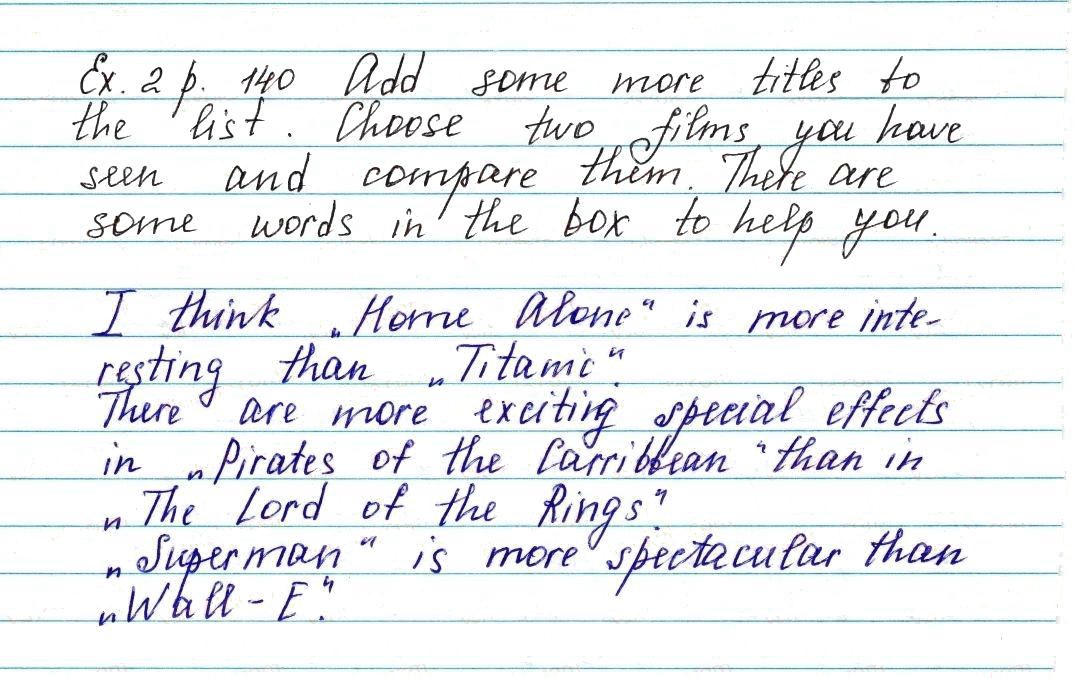 Ex. 2 p. 140 Add some more titles to
the list. Choose two films you have
seen and compare them. There are
some words in the box to help you.
I think „Home Alone“ is more inte-
resting than „Titanic“.
There are more exciting special effects
in „Pirates of the Carribbean“ than in
„The Lord of the Rings“.
„Superman“ is more spectacular than
„Wall-E“.